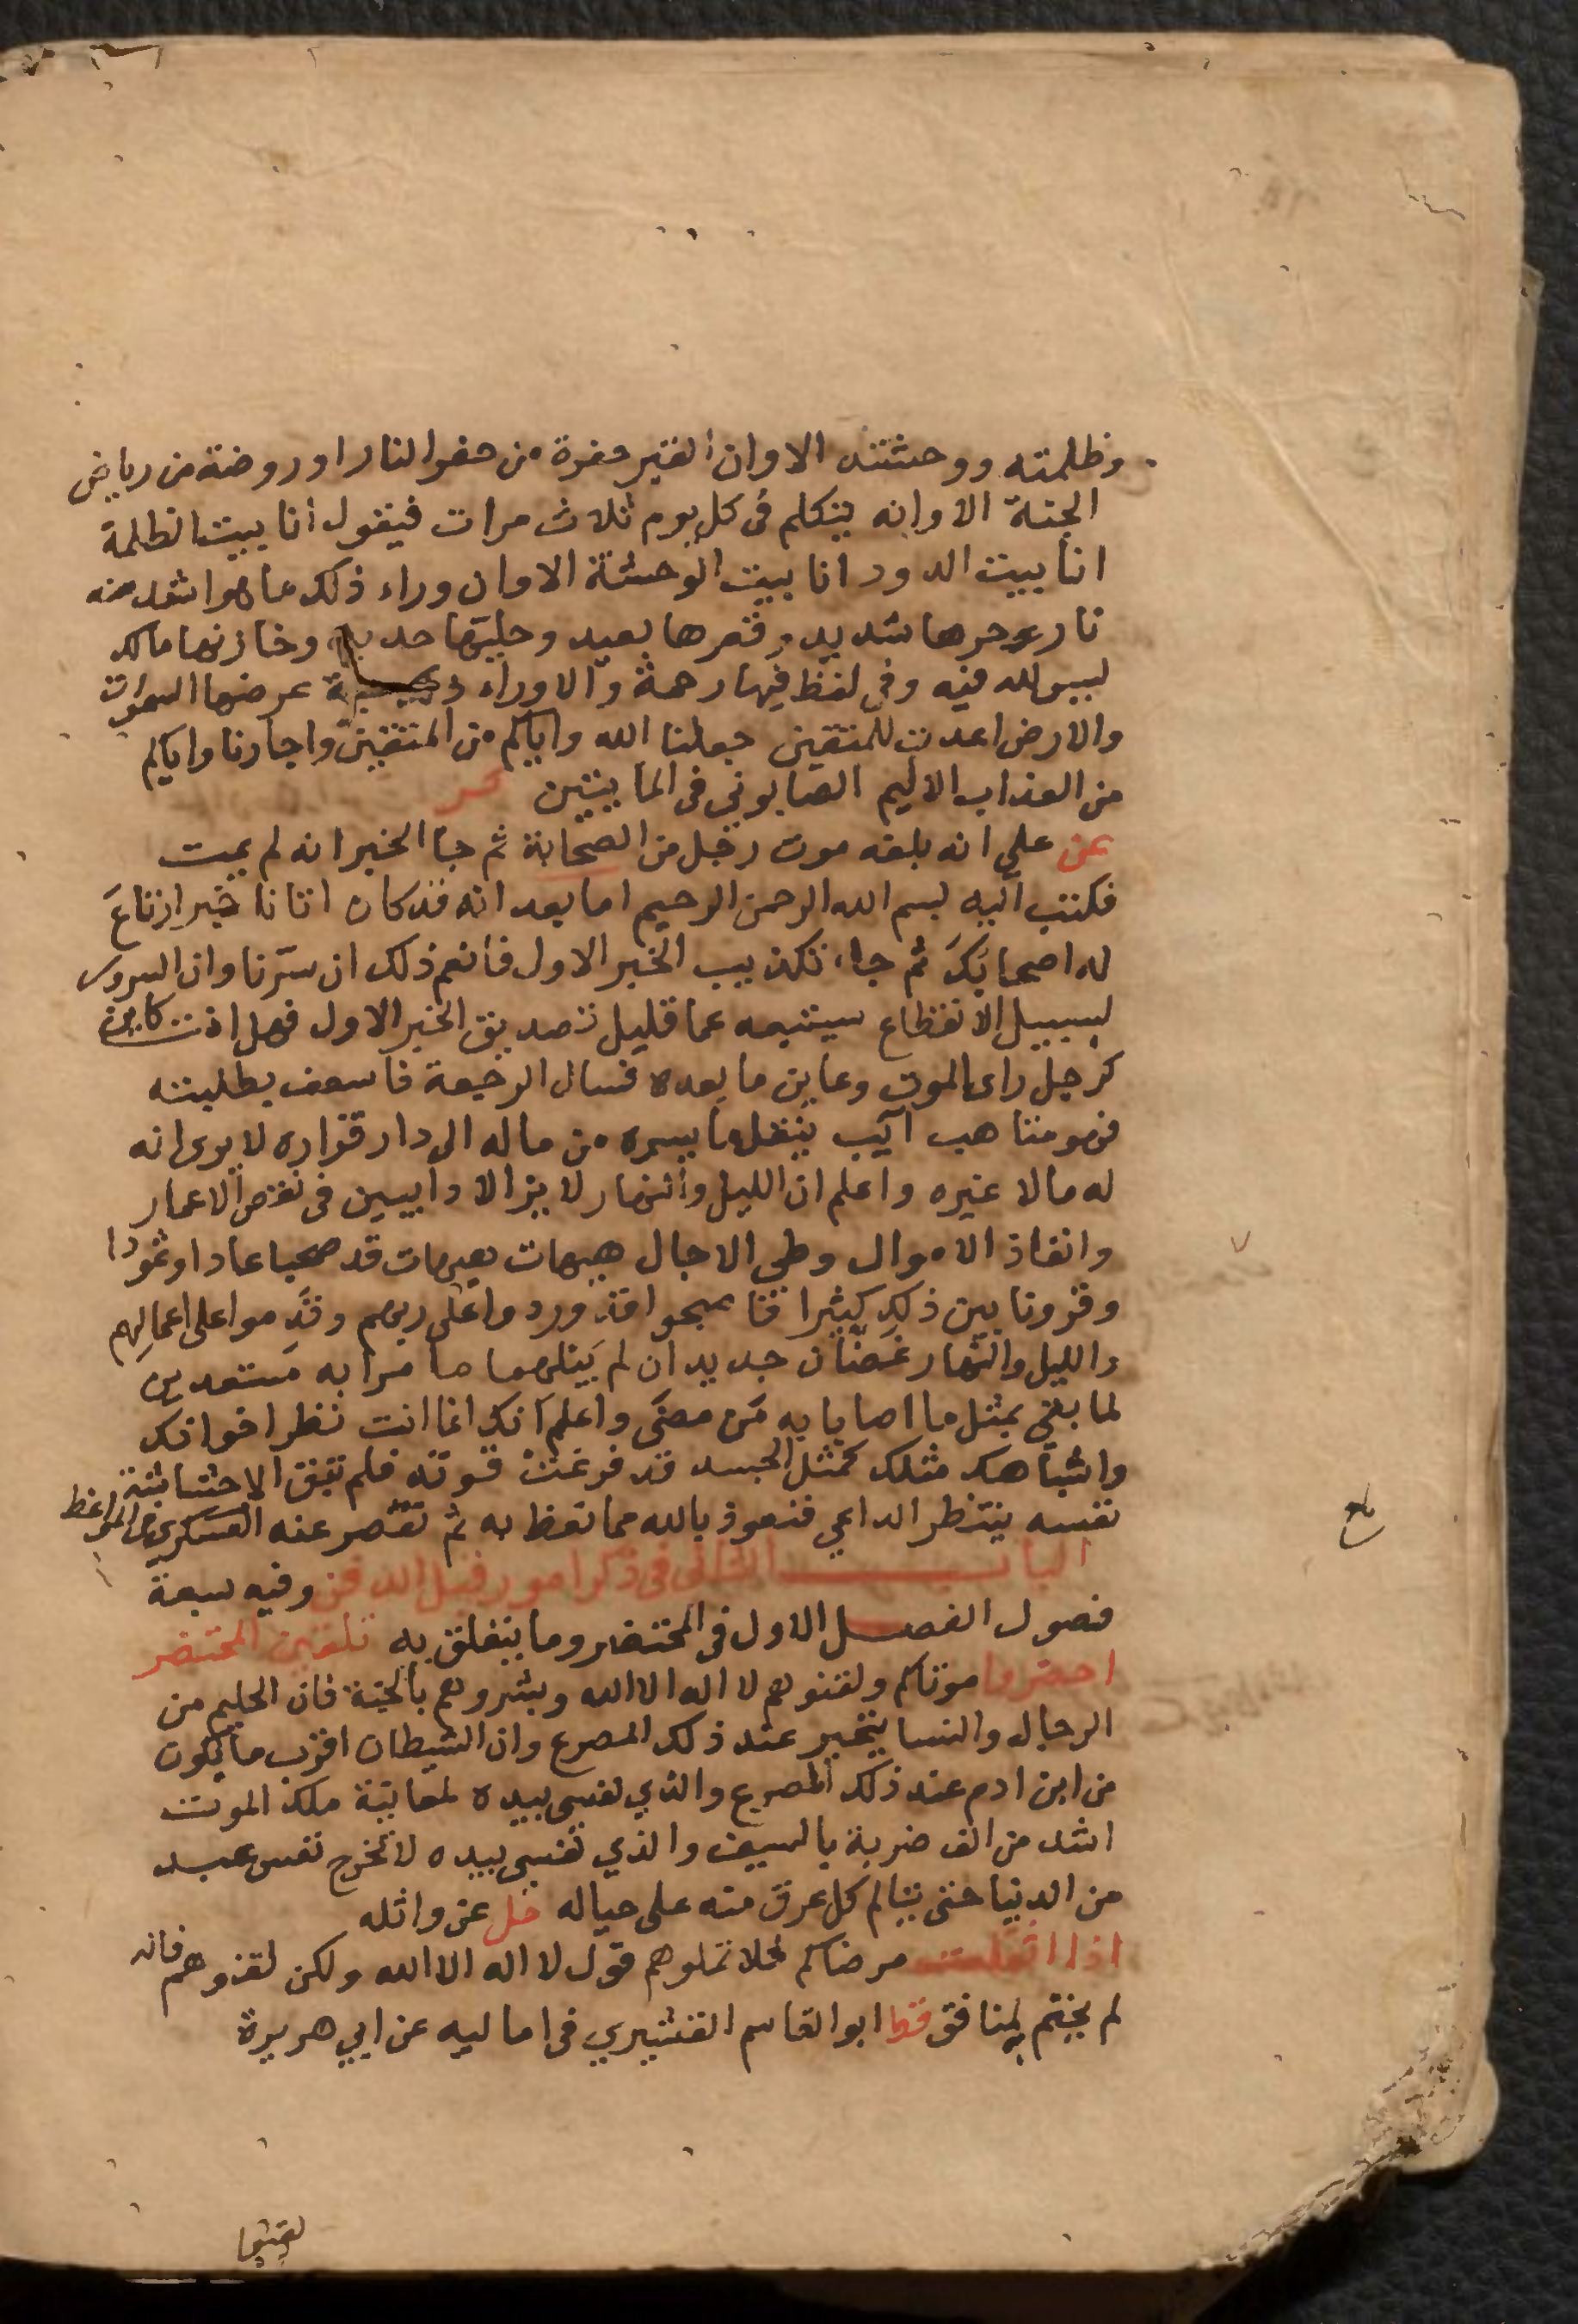 وظلمته ووحشته الا وان القبر حفرة من حفر النار او روضة من رياض
الجنة الا وانه يتكلم فى كل يوم ثلاث مرات فيقول انا بيت الظلمة
انا بيت الدود انا بيت الوحشة الا وان وراء ذلك ما هو اشد منه
نار حرها شديد وقعرها بعيد وحليتها حديد وخازنها مالك
ليس لله فيه وفى لفظ فيها رحمة والا وراء ذ جنة عرضها السموات
والارض اعدت للمتقين جعلنا الله واياكم من المتقين واجارنا واياكم
من العذاب الاليم الصابونى فى المايتين كر
عن على انه بلغه موت رجل من الصحابة ثم جا الخبر انه لم يمت
فكتب اليه بسم الله الرحمن الرحيم اما بعد انه قد كان اتانا خبر ارتاعَ
له اصحابكَ ثم جاء تكذيب الخبر الاول فانعم ذلك ان سرّنا وان السرور
لسبيل الانقطاع سيتبعه عما قليل تصديق الخبر الاول فهل انت كاين
كرجل راى الموت وعاين ما بعده فسال الرجعة فاسعف بطلبته
فهو متاهب آيب ينقل ما يسره من ماله الى دار قراره لا يرى انه
له مالا غيره واعلم ان الليل والنهار لا يزالا دايبين فى نقص الاعمار
وانفاذ الاموال وطى الاجال هيهات هيهات قد صحبا عادا وثمودا
وقرونا بين ذلك كثيرا فاصبحوا قد وردوا على ربهم وقدِموا على اعمالِهم
والليل والنهار غضّان جديدان لم يَبْلهما ما مرا به مستعدين
لما بقى بمثل ما اصابا به مَن مضَى واعلم انك انما انت نظر اخوانك
واشباهك مثلك كمثل الجسد قد فرغت قوته فلم تبق الا حشاشة
نفسه ينتظر الداعى فنعوذ بالله مما نعظ به ثم نقصر عنه العسكرى فى المواعظ
البـاب الثانى فى ذكر امور قبل الدفن وفيه سبعة
فصول الفصل الاول فى المحتضر وما يتعلق به تلقين المحتضر
احضروا موتاكم ولقنوهم لا اله الا الله وبشروهم بالجنة فان الحليم من
الرجال والنسا يتحير عند ذلك المصرع وان الشيطان اقرب ما يكون
من ابن ادم عند ذلك المصرع والذى نفسى بيده لمعاينة ملك الموت
اشد من الف ضربة بالسيف والذى نفسى بيده لا تخرج نفس عبد
من الدنيا حتى يتالم كل عرق منه على حياله حل عن واثله
اذا اثقلت مرضاكم فلا تملوهم قول لا اله الا الله ولكن لقنوهم فانه
لم يختم به لمنافق قط ابو القاسم القشيرى فى اماليه عن ابى هريرة